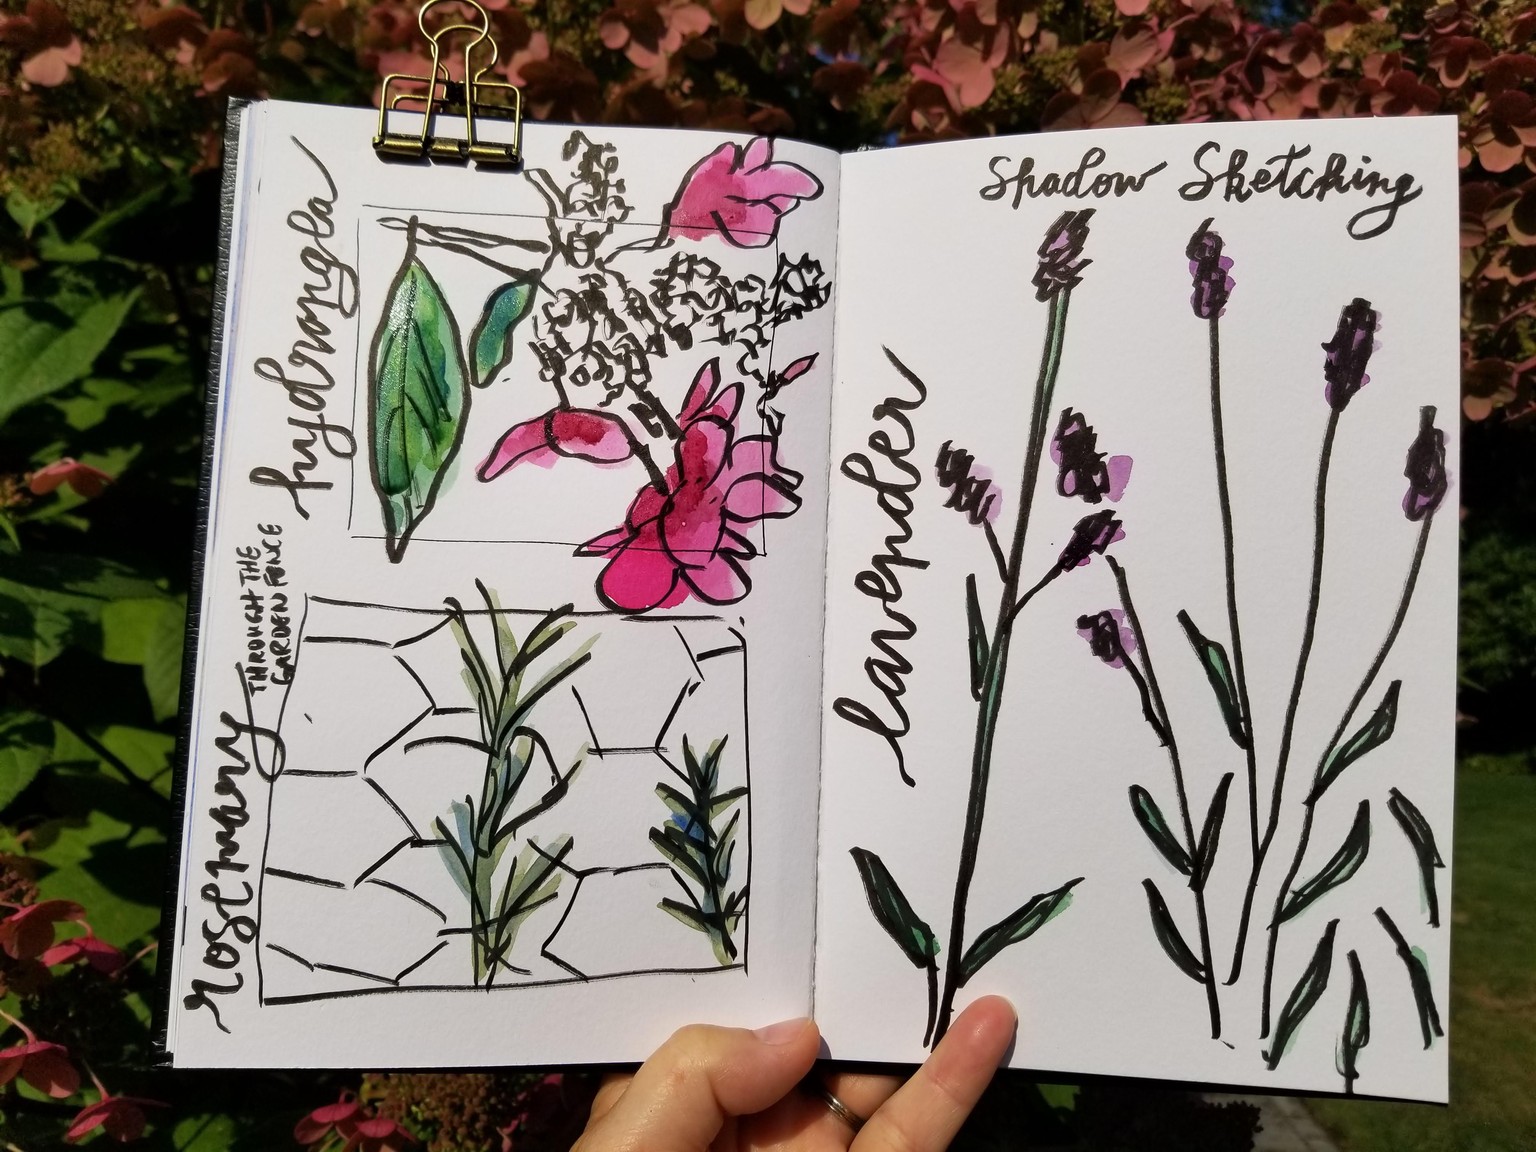 hydrangla
THROUGH THE
GARDEN FENCE
rosemary
Shadow Sketching
lavender